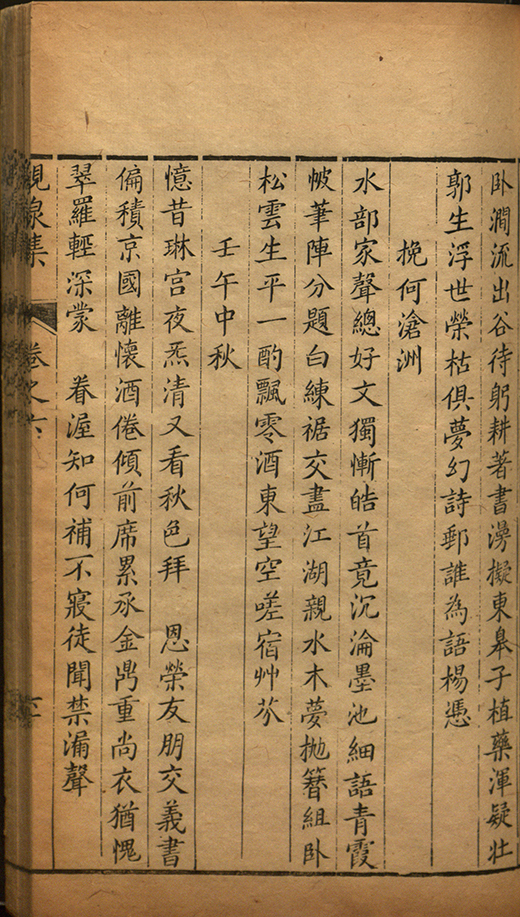 卧澗流出谷待躬耕著書漫擬東皋子植藥渾疑壮
郭生浮世榮枯俱夢幻詩郵誰為語楊憑
挽何滄洲
水部家聲總好文獨慚皓首竟沉淪墨池細語青霞
帔華陣分題白練裾交盡江湖親水木夢拋簪組卧
松雲生平一酌飄零酒東望空嗟宿艸芥
壬午中秋
憶昔琳宮夜炁清又看秋色拜　恩榮友朋交義書
偏積京國離懷酒倦傾前席累承金鼎重尚衣猶愧
翠羅輕深蒙　眷渥知何補不寢徒聞禁漏聲
峴泉集　卷之六